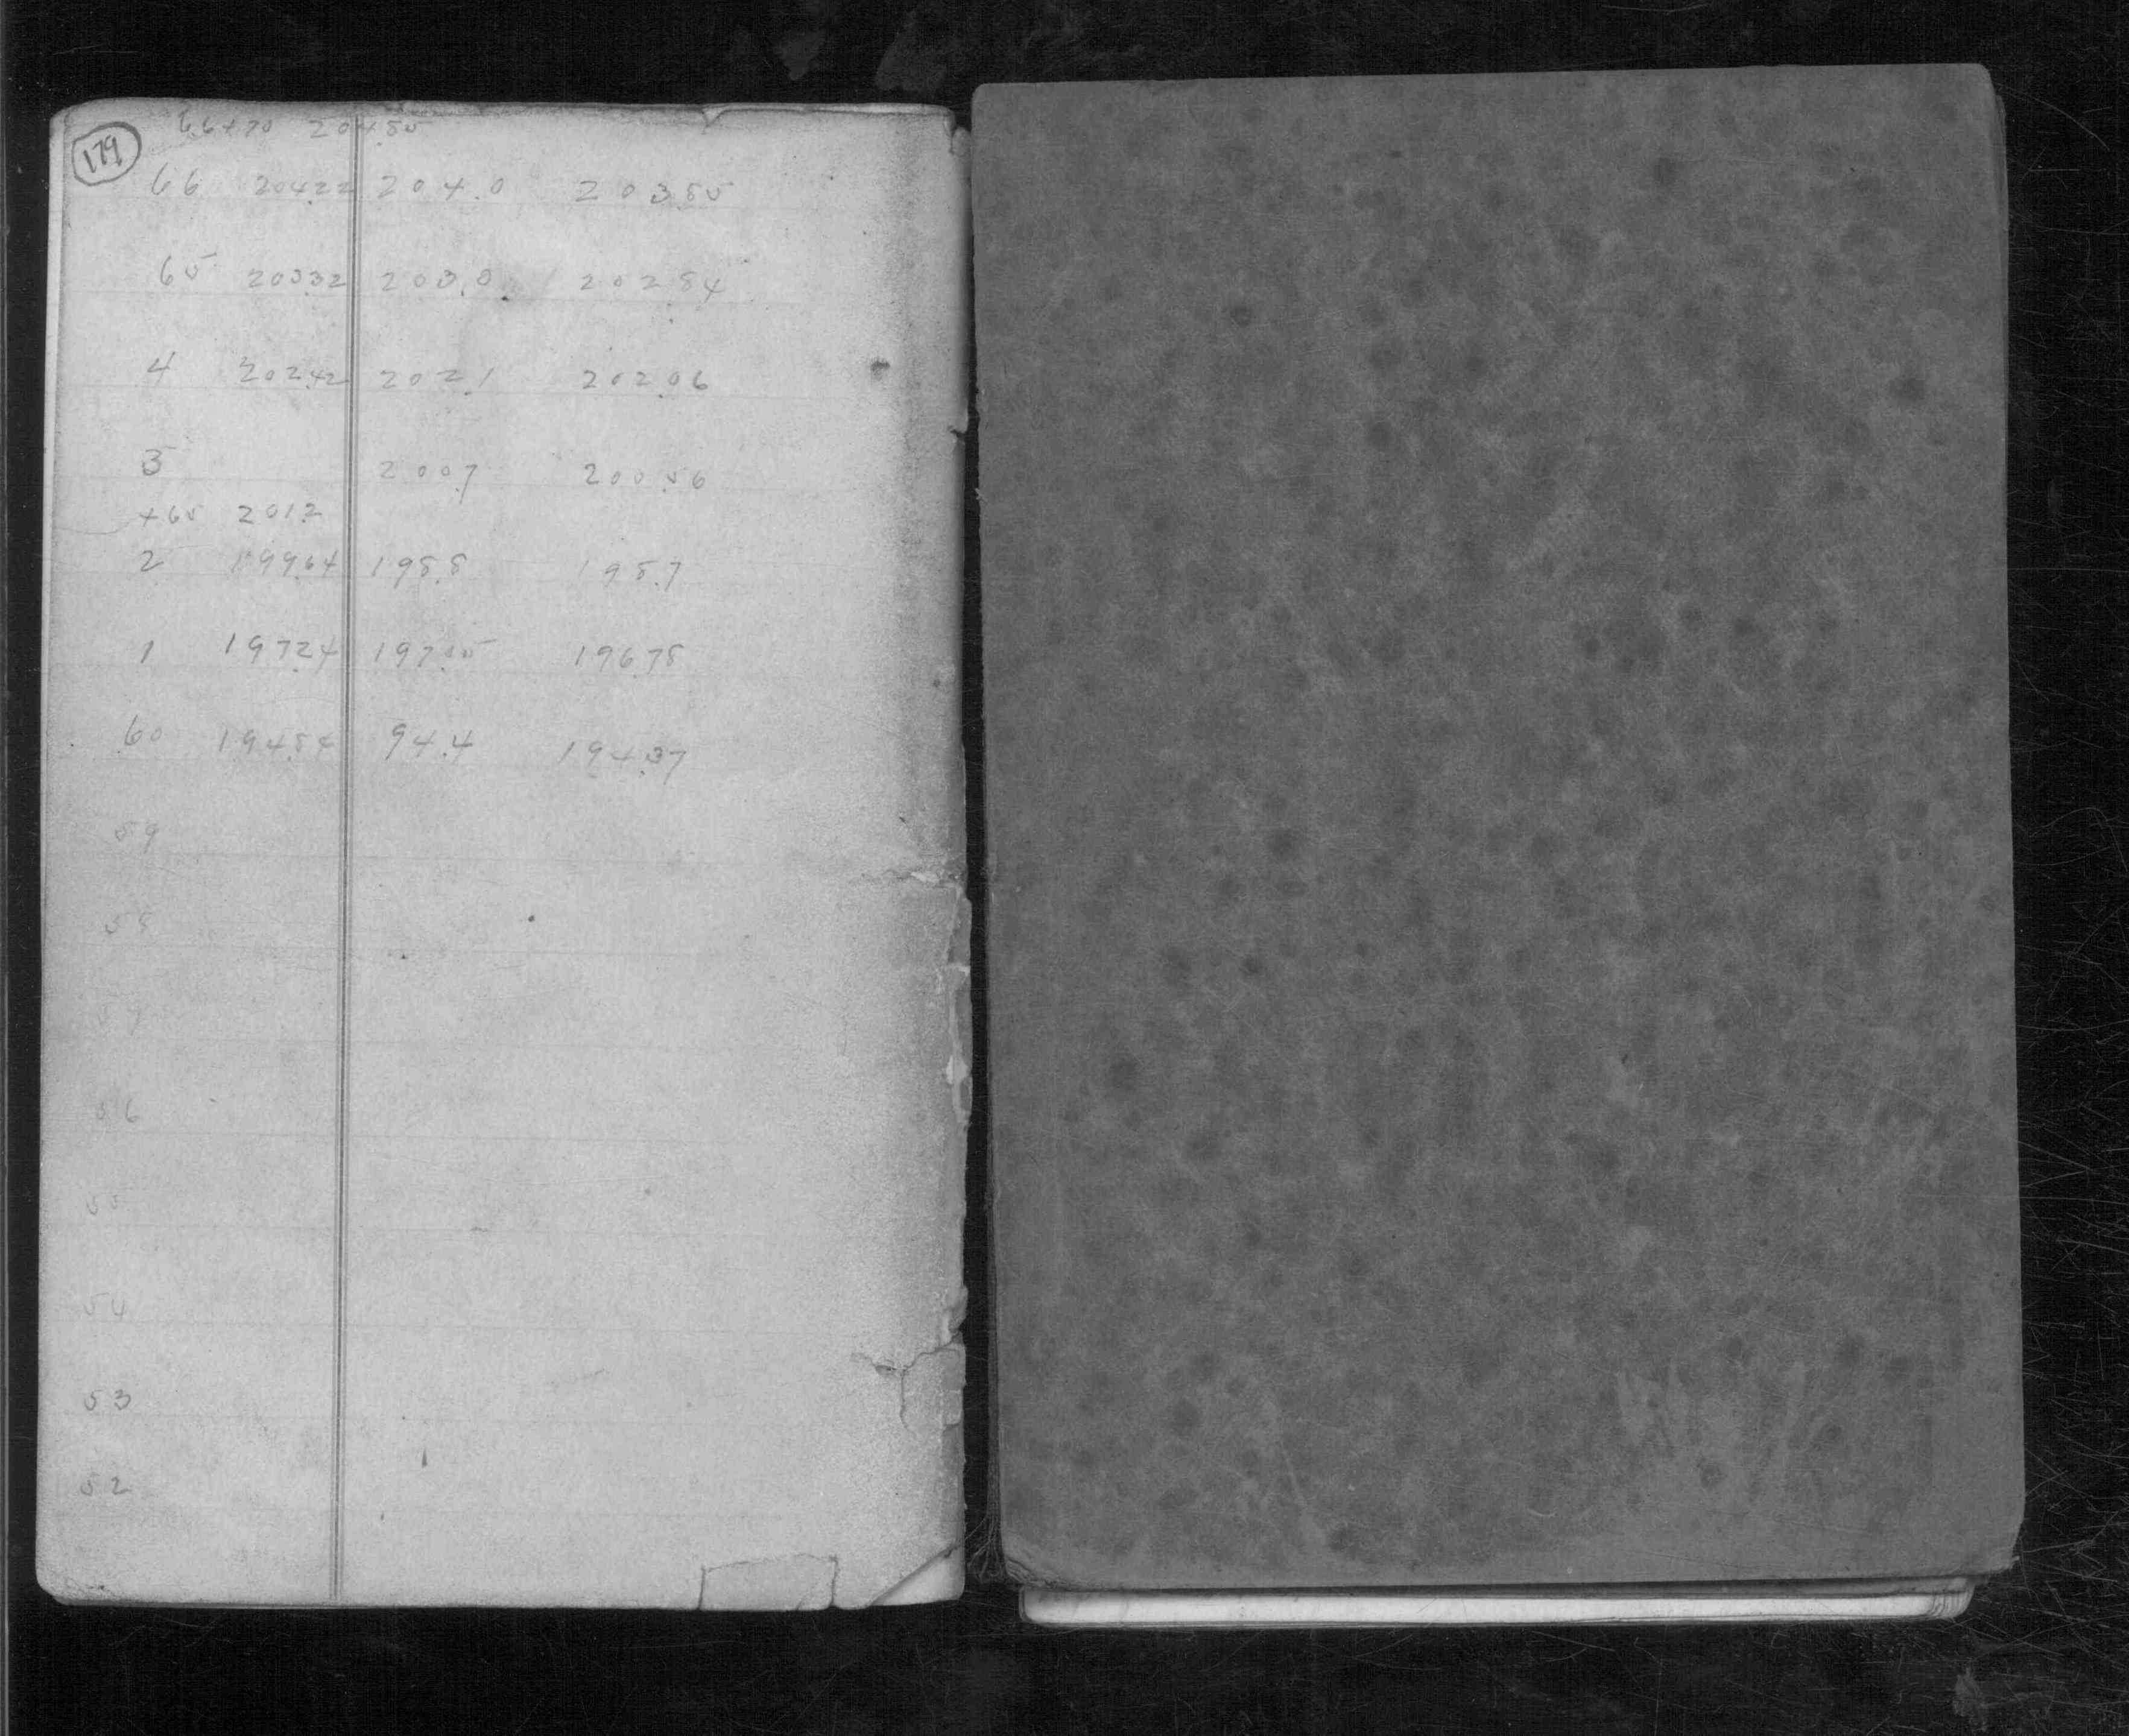 179
66+70 204.85
66 204.22 204.0 203.85
65 203.32 203.0 202.84
4 202.42 202.1 202.06
3 200.7 200.56
+65 201.2
2 199.64 198.8 198.7
1 197.24 197.05 196.78
60 194.84 94.4 194.37
59
58
57
56
55
54
53
52